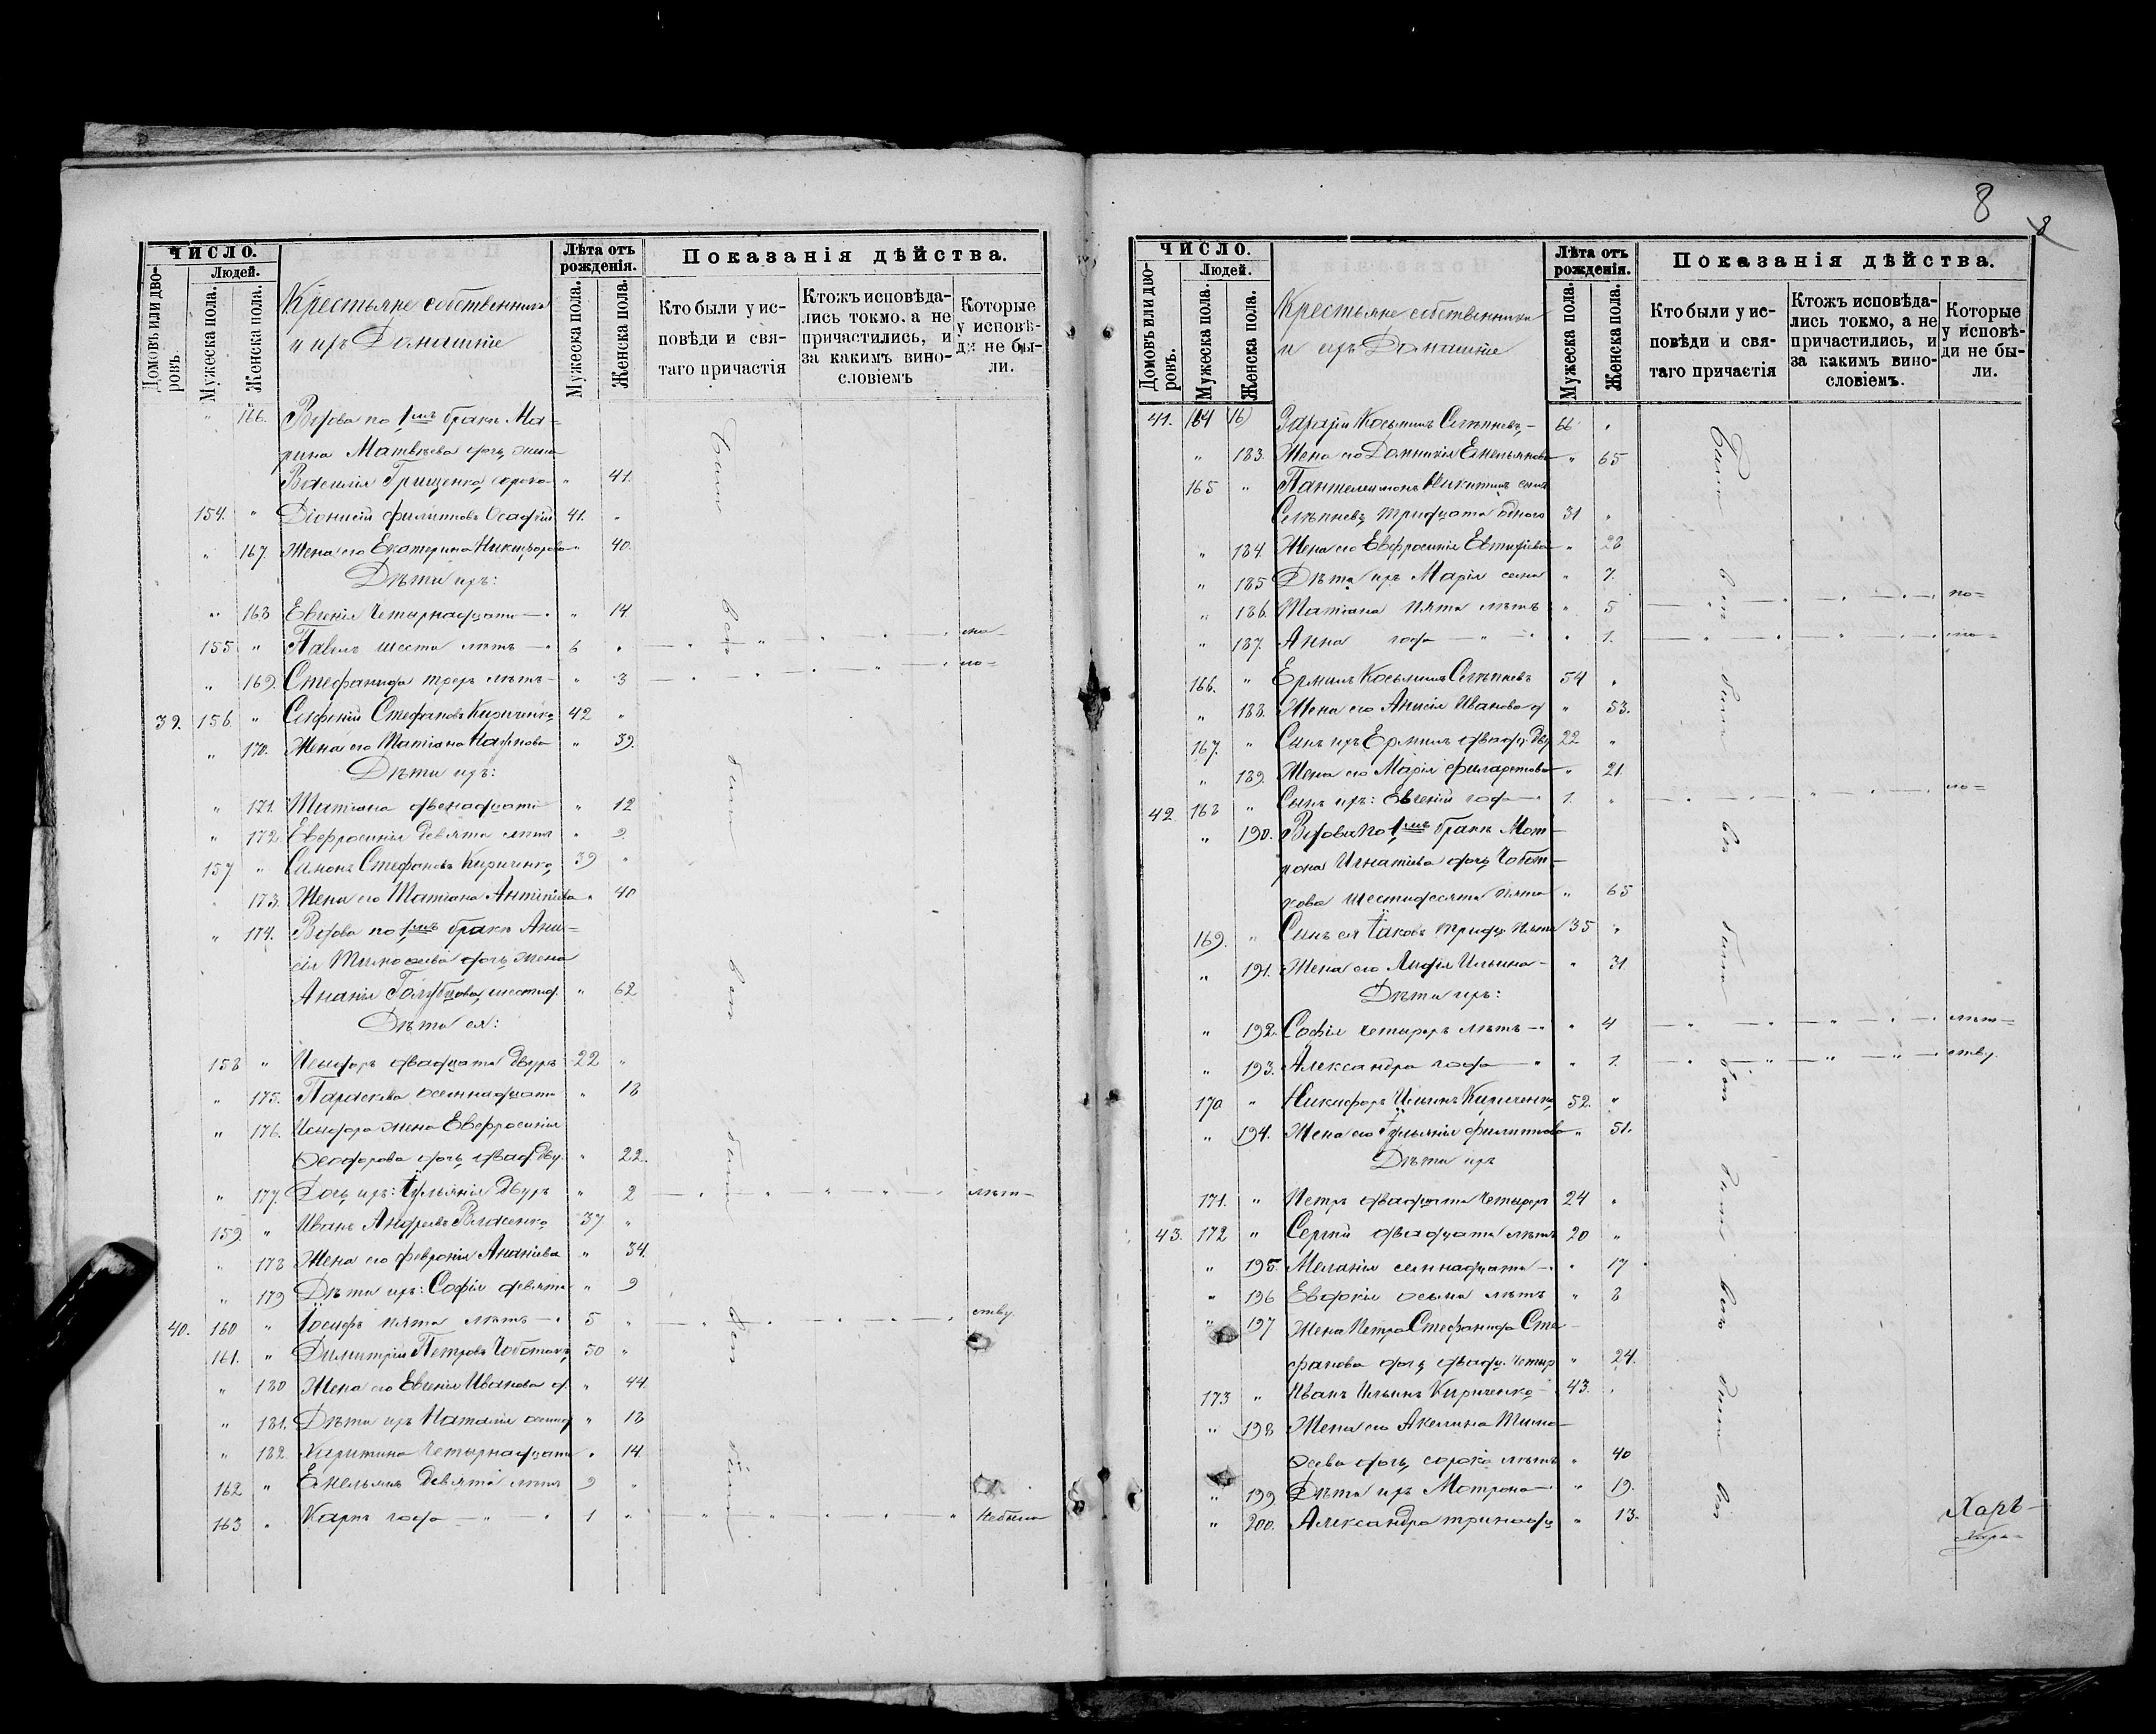 ЧИСЛО.
Домовъ или дворовъ.
Людей.
Мужеска пола.
Женска пола.
Крестьяне собственники
и ихъ Домашніе
Лѣта отъ рожденія.
Мужеска пола.
Женска пола.
Показанія дѣйства.
Кто были у исповѣди и святаго причастія
Ктожъ исповѣдались токмо, а не причастились, и за какимъ винословіемъ
Которые у исповѣди не были.
" 166. Вдова по 1мъ бракѣ Ма-
рина Матвѣева дочь, жена
Василія Грищенко, сорока " 41.
154. " Діонисій Филипповъ 41. "
" 167 Жена его Екатерина Никифорова " 40.
Дѣти ихъ:
" 168 Евгенія Четырнадцати " 14.
155 " Павелъ шести лѣтъ 6 "
" 169. Стефанида трехъ лѣтъ " 3 по=
39. 156 " Стефановъ Кириченко 42 "
" 170. Жена его Татіана " 39.
Дѣти ихъ:
" 171. Татіана двенадцати " 12
" 172 Евфросинія девяти лѣтъ " 9
157 " Симонъ Стефановъ Кириченко, 39 "
" 173. Жена его Татіана Антипіева " 40
" 174. Вдова по 1мъ бракѣ Ани-
сія Тимофеева дочь, жена
Ананія Голубцова, шестид. " 62
Дѣти ея:
158 " двадцати двухъ 22 "
" 175. Параскева осемнадцати " 18
" 176. жена Евфросинія
Феодорова дочь, двад. дву. " 22.
" 177. Дочь ихъ: Іульянія Двухъ " 2 лѣт-
159. " Иванъ Андреевъ Власенко 37 "
" 178 Жена его Февронія Ананіева " 34.
" 179 Дѣти ихъ: Софія девяти " 9
40. 160 " Іосифъ пяти лѣтъ 5 " ству.
161. " Димитрій Петровъ Чоботарь, 50 "
" 180 Жена его Евгенія Иванова д. " 44.
" 181. Дѣти ихъ Наталія " 18
" 182. Харитина Четырнадцати " 14.
162 " Емельянъ Девяти лѣтъ 9 "
163 " Карпъ года 1 " небыли
8
8
ЧИСЛО.
Домовъ или дворовъ.
Людей.
Мужеска пола.
Женска пола.
Крестьяне собственники
и ихъ Домашніе
Лѣта отъ рожденія.
Мужеска пола.
Женска пола.
Показанія дѣйства.
Кто были у исповѣди и святаго причастія
Ктожъ исповѣдались токмо, а не причастились, и за какимъ винословіемъ.
Которые у исповѣди не были.
41. 164 Косьминъ 66 "
" 183. Жена его Домникія Емельянова " 65
165 " Пантелеимонъ Никитинъ сынъ
тридцати одного 31 "
" 184. Жена его Евфросинія Евтихіева " 28
" 185 Дѣти ихъ Марія семи " 7.
" 186. Татіана пяти лѣтъ " 5 по=
" 187. Анна года " 1.
166. " Ермилъ Косьминъ 54 "
" 188. Жена его Анисія Иванова д " 53.
167. " Сынъ ихъ Ермилъ двадц. дву 22 "
" 189. Жена его Марія Филаретова " 21.
42. 168 " Сынъ ихъ: Евгеній года 1. " по=
" 190. Вдова по 1мъ бракѣ Мот-
рона Игнатіева дочь, Чобот-
кова шестидесяти пяти " 65
169. " Сынъ ея Іаковъ тридц. пяти 35 "
" 191. Жена его Лидія Ильина " 31.
Дѣти ихъ:
" 192. Софія четырехъ лѣтъ " 4 лѣт-
" 193. Александра года " 1. ству.
170 " Никифоръ Ильинъ Кириченко, 52. "
" 194. Жена его Іульянія Филиппова " 51.
Дѣти ихъ
171. " Петръ двадцати Четырех 24 "
43. 172 " Сергій двадцати лѣтъ 20 "
" 195. Меланія семнадцати " 17
" 196 Евдокія осьми лѣтъ " 8
" 197 Жена Петра Стефанида Сте-
фанова дочь двадц. четыр " 24.
173 " Иванъ Ильинъ Кириченко 43. "
" 198 Жена его Акилина Тимо-
феева дочь, сорока лѣтъ " 40
" 199 Дѣти ихъ Мотрона " 19.
" 200. Александра тринадц " 13.
Харь-